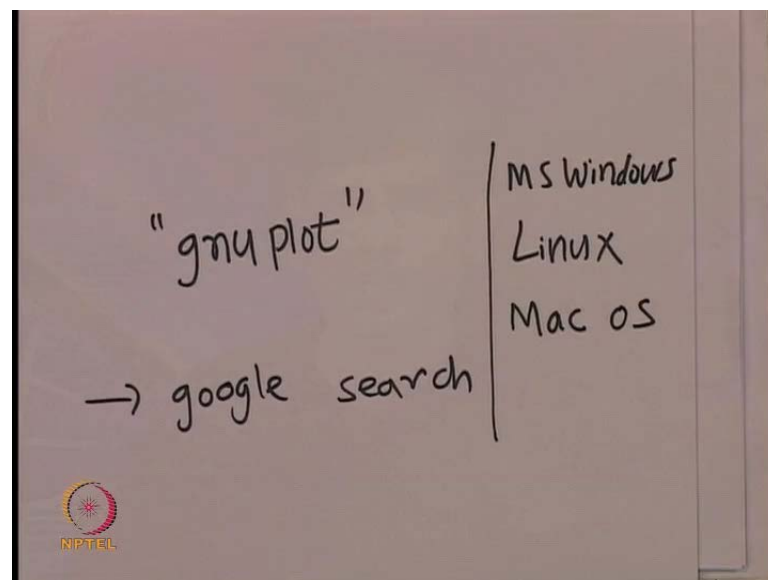 "gnuplot"
→ google search
MS Windows
Linux
Mac OS
NPTEL